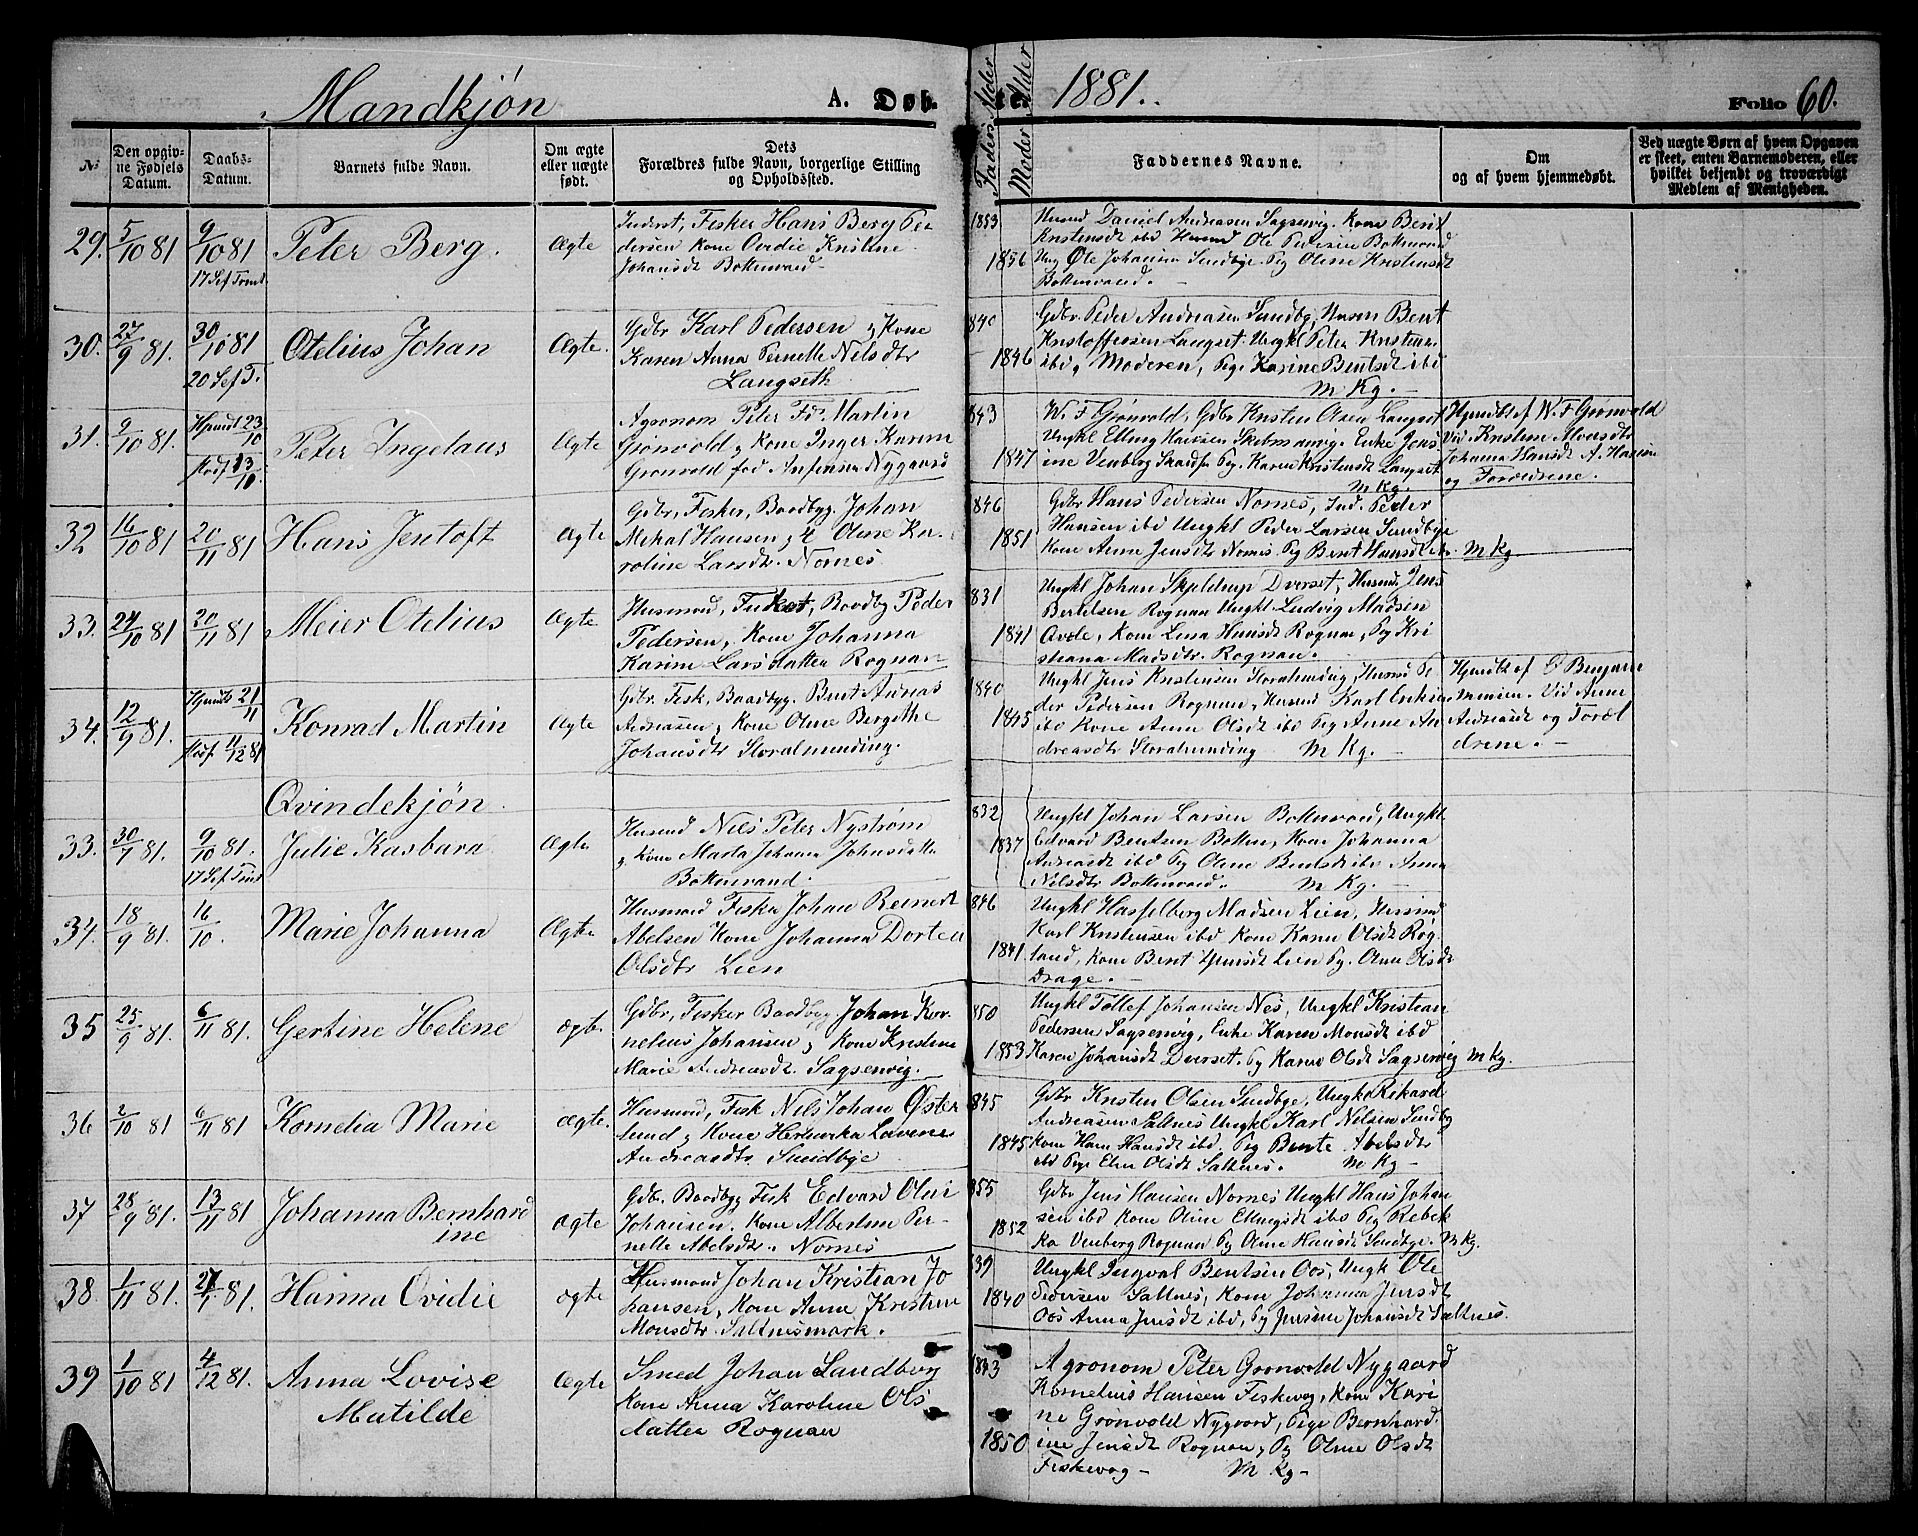 Mandkjøn
A. Døbte.
1881.
Folio 60.
No
Den opgivne Fødsels Datum.
Daabs-Datum.
Barnets fulde Navn.
Om ægte eller uægte født.
Dets Forældres fulde Navn, borgerlige Stilling og Opholdssted.
Faders Alder
Moders Alder
Faddernes Navne.
Om og af hvem hjemmedøbt.
Ved uægte Børn af hvem Opgaven er skeet, enten Barnemoderen, eller hvilket bekjendt og troværdigt Medlem af Menigheden.
29. 5/10 81 9/10 81 Peter Berg. Ægte
17 Sef Trint
Inderst, Fisker Hans Berg Pe
dersen Kone Ovidie Kristine
Johansdt Bottenvand
1853
1856
Husmd Daniel Andreasen Sagsenvig. Kone Berit
Kristensdt ibd Husmd Ole Pedersen Bottenvand
Ung Ole Johansen Sundbye. Pig Oline Kristensdt
Bottenvand.
30. 27/9 81. 30/10 81 Otelius Johan Ægte.
20 Sef T.
Gdbr Karl Pedersen & Kone
Karen Anna Pernelle Nilsdtr
Langseth
840
1846
Gdbr. Peder Andreasen Sundby, Husm Bent
Kristoffersen Langset. Ungkl Peter Kristian.
ibd, Moderen, Pige Karine Bentsdt ibd
M Kg.
31. 9/10 81. Hjmdt 23/10 Peter Ingelaus Ægte
Stadf 13/10
Agronom Peter Fr. Martin
Grønvold & Kone Inger Karine
Grønvold fød Anfensen Nygaard
843
1847
W. F Grønvold, Gdbr Kristen Olsen Langset
Ungkl Elling Hansen Sketmanvig. Enke Jens
ine Venberg Pig. Karen Kristensdt Langset
M Kg.
Hjmdt af W. F Grønvold
Vid. Kristine
Johanna Hansdt A. Hansen
og Forældrene.
32 16/10 81 20/11 81 Hans Jentoft Ægte
Gdbr, Fisker, Baadbyg. Johan
Mikal Hansen & K Oline Ka-
roline Larsdtr. Nornes
846
1851
Gdbr Hans Pedersen Nornes, Ind. Peder
Hansen ibd Ungkl Peder Larsen Sundbye
Kone Anne Jensdtr Nornes Pig Berit Hansdt ibd. M Kg
33. 24/10 81 20/11 81 Meier Otelius Ægte
Husmand, Fisker, Baadby Peder
Pedersen, Kone Johanna
Karine Larsdatter Rognan
831
1841
Ungkl Johan Skjeldrup Dverset, Husmd Jens
Berntsen Rognan Ungkl Ludvig Madsen
Kone Lina Hansdt Rognan, Pig Kri
stiana Madsdtr. Rognan.
34. 12/9 81. Hjmdt 21/11 Konrad Martin Ægte
Stadf 11/12 81
Gdbr. Fisk, Baadbyg. Bent Andreas
Andreassen, Kone Oline Bergithe
Johansdtr Storalmending.
1840
1845
Ungkl Jens Kristensen Storalmending, Husmd Pe
der Pedersen Rognan, Husmd Karl Eriksen
ibd Kone Anne Olsdt ibd Pig Anne An
dreasdtr Storalmending M Kg.
Hjmdt af O Benjamin
Vid Anne
Andreasdt og Foræl
drene.
Qvindekjøn
33. 30/7 81. 9/10 81. Julie Kasbara Ægte.
17 Sef Trint
Husmd Nils Peter Nystrøm
& Kone Marta Johanna Johnsdatter
Bottenvand.
832
1837
Ungkl Johan Larsen Bottenvand, Ungkl
Edvard Bentsen Botten, Kone Johanna
Andreasdt ibd Pig Oline Bentsdt ibd Anna
Nilsdtr Bottenvand. M Kg.
34. 18/9 81. 16/10. Marie Johanna Ægte
Husmand Fisker Johan Reinert
Abelsen Kone Johanna Dortea
Olsdtr Lien
846
1841
Ungkl Hasselberg Madsen Lien, Husmd
Karl Kristensen ibd Kone Karen Olsdt Rog
land, Kone Berit Jensdt Lien Pig. Oline Olsdt
Drage.
35 25/9 81. 6/11 81. Gertine Helene Ægte.
Gdbr, Fisker Baadbyg Johan Kor
nelius Johansen, Kone Kristine
Marie Andreasdt. Sagsenvig.
850
1853
Ungkl Tollef Johansen Nes, Ungkl Kristian
Pedersen Sagsenvig, Enke Karen Monsdt ibd
Karen Johansdt Dverset. Pg Karen Olsdt Sagsenvig M Kg.
36 2/10 81 6/11 81 Kornelia Marie Ægte.
Husmand, Fisk Nils Johan Øster
lund & Kone Henrika Lavine
Andreasdtr. Sundbye
845
1845
Gdbr Kristen Olsen Sundbye, Ungk Rikard
Andreasen Saltnes Ungkl Karl Nilsen Sundby
Kone Hansdt ibd. Pig Bente Abelsdtr
ibd Pige Elen Olsdt Saltnes. M Kg
37 28/9 81. 13/11 81 Johanna Bernhard Ægte
ine
Gdbr. Baadbyg Fisk Edvard Olai
Johansen. Kone Albertine Per-
nelle Abelsdtr. Nornes
855
1852
Gdbr Jens Hansen Nornes Ungkl Hans Johan
sen ibd Kone Oline Ellingsdt ibd Pig Rebek
ka Venberg Rognan Pg Oline Hansdt Sundbye. M Kg.
38. 1/11 81. 27/ 81. Hanna Ovidie Ægte
Husmand Johan Kristian Jo
hansen, Kone Anna Kristine
Monsdtr. Saltnesmark.
39
1840
Ungkl Ingval Bentsen Oos, Ungk Ole
Pedersen Saltnes, Kone Johanna Jensdt
Oos Anna Jensdt ibd, Pg Jensine Johansdt Saltnes.
39 1/10 81 4/12 81. Anna Lovise Ægte
Matilde
Smed Johan Sandberg
Kone Anna Karoline Ols
datter Rognan
1843
1850
Agronom Peter Grønvold Nygaard
Kornelius Hansen Fiskevog, Kone Kari
ne Grønvold Nygaard, Pige Bernhard.
ine Jensdt Rognan, Pg Oline Olsdt
Fiskevog M Kg